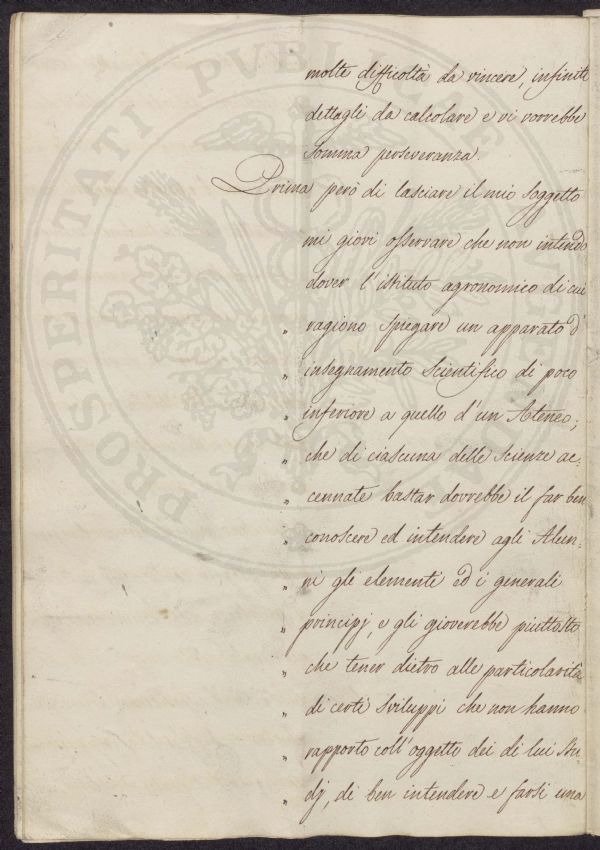 molte difficoltà da vincere, infiniti
dettagli da calcolare e vi vorrebbe
somma perseveranza.
Prima però di lasciare il mio soggetto
mi giovi osservare che non intendo
dover l'istituto agronomico di cui
„ ragiono spiegare un apparato d'
„ insegnamento scientifico di poco
„ inferiore a quello d'un Ateneo;
„ che di ciascuna delle scienze ac-
„ cennate bastar dovrebbe il far ben
„ conoscere ed intendere agli Alun-
„ ni gli elementi ed i generali
„ principj, e gli gioverebbe piuttosto
„ che tener dietro alle particolarità
„ di certi sviluppi che non hanno
„ rapporto coll'oggetto dei di lui stu-
„ dj, di ben intendere e farsi una
PROSPERITATI PVBLICAE